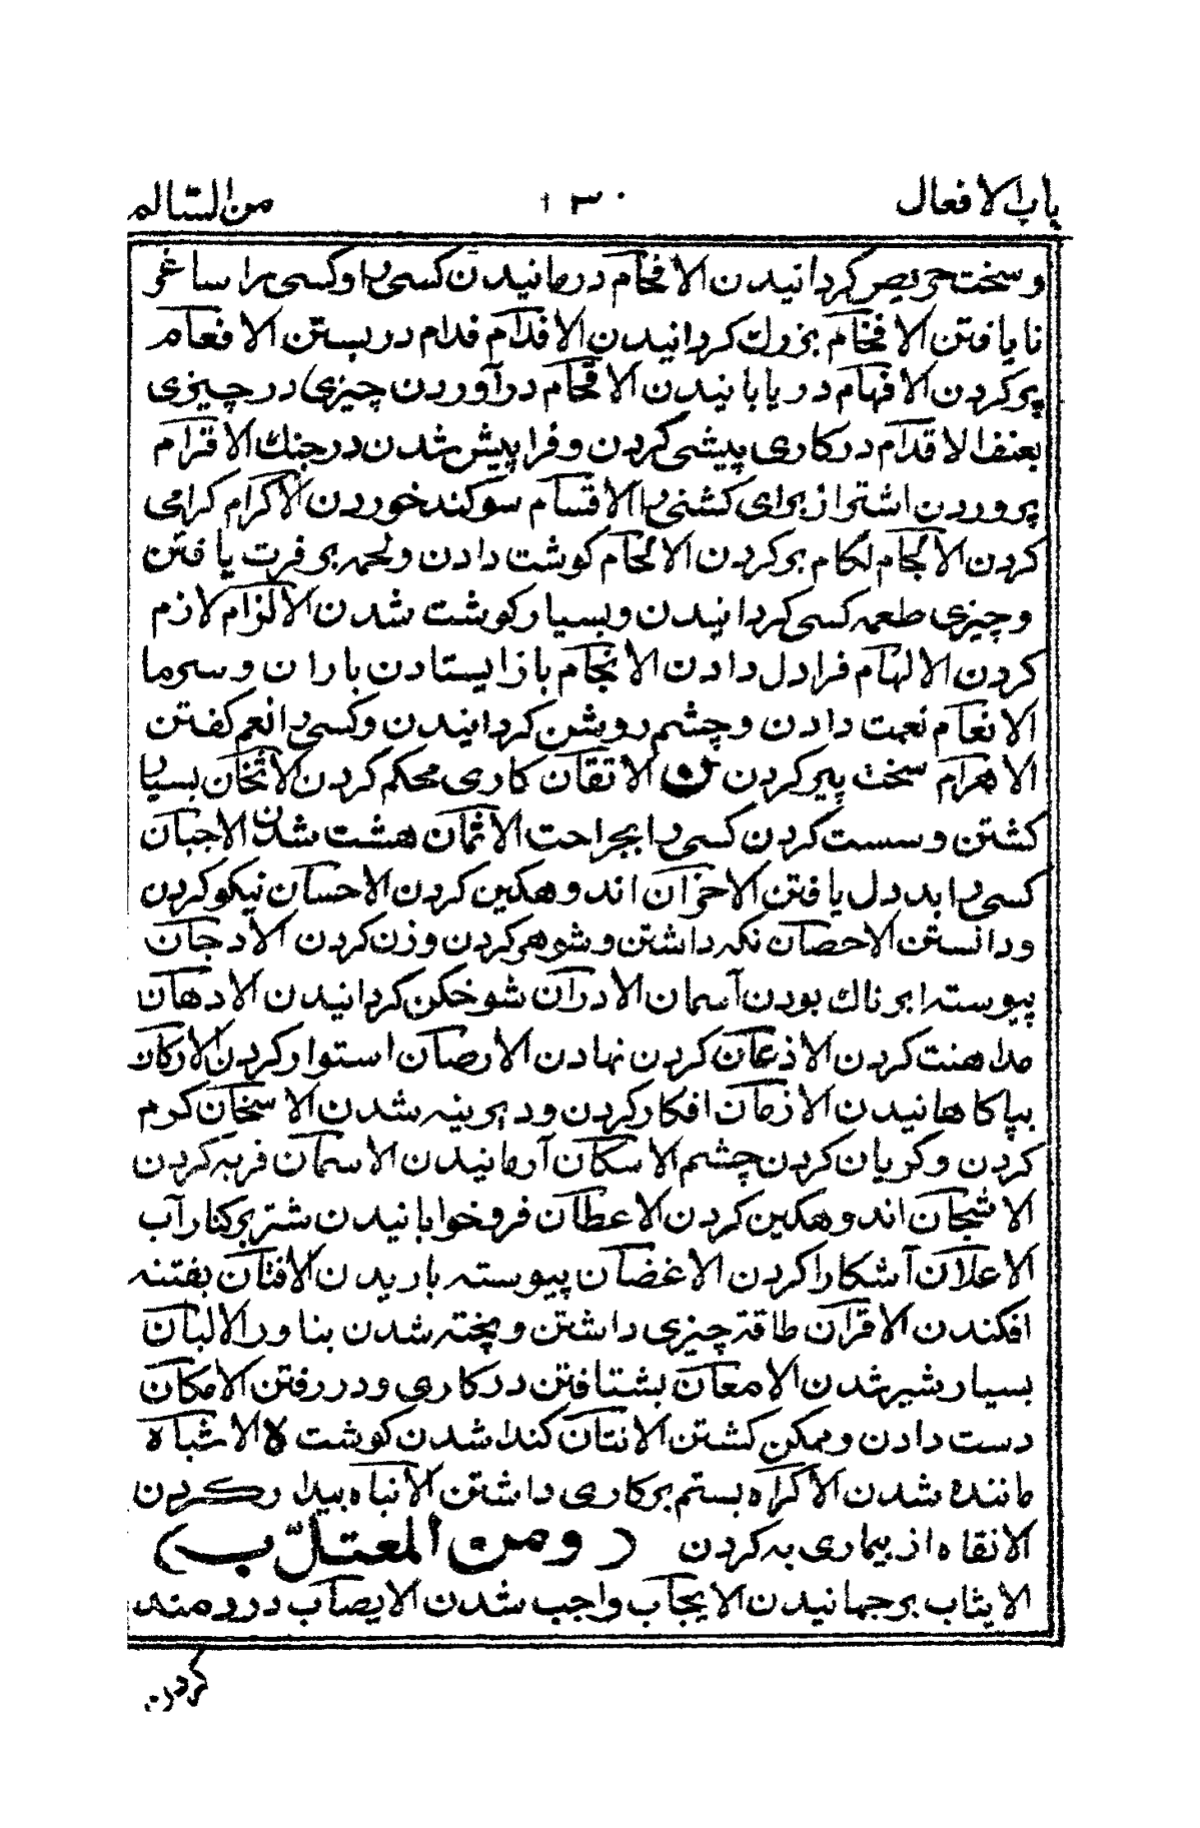 باب الافعال ١٣٠ من السّالم
و سخت حریص گردانیدن الافحام درمانیدن کسی را و کسی را ساغر
نایافتن الافخام بزرك گردانیدن الافدام فدام در بستن الافعام
پر کردن الافهام دریابانیدن الاقحام درآوردن چیزی در چیزی
بعنف الاقدام در کاری پیشی کردن و فرا پیش شدن در جنك الاقرام
پروردن اشتر از برای کشنی را الاقسام سوکند خوردن الاکرام کرامی
کردن الالجام لکام بر کردن الالحام کوشت دادن و لحمه بر فرت یافتن
و چیزی طعمه کسی کردانیدن و بسیار کوشت شدن الالزام لازم
کردن الالهام فرا دل دادن الانجام باز ایستادن باران و سرما
الانعام نعمت دادن و چشم روشن کردانیدن و کسی را نعم کفتن
الاهرام سخت پیر کردن ن الاتقان کاری محکم کردن الاثخان بسیار
کشتن و سست کردن کسی را بجراحت الاثمان هشت شدن الاجبان
کسی را بددل یافتن الاحزان اندوهکین کردن الاحسان نیکو کردن
و دانستن الاحصان نکه داشتن و شوهر کردن و زن کردن الادجان
پیوسته ابرناك بودن آسمان الادران شوخکن کردانیدن الادهان
مداهنت کردن الاذعان کردن نهادن الارصان استوار کردن الارکان
بپاکاهانیدن الازمان افکار کردن و دیرینه شدن الاسخان کرم
کردن و کریان کردن چشم الاسکان آرمانیدن الاسمان فربه کردن
الاشجان اندوهکین کردن الاعطان فروخوابانیدن شتر بر کنار آب
الاعلان آشکارا کردن الاغضان پیوسته باریدن الافتان بفتنه
افکندن الاقران طاقة چیزی داشتن و پخته شدن بناور الالبان
بسیار شیر شدن الامعان بشتافتن در کاری و دور رفتن الامکان
دست دادن و ممکن کشتن الانتان کنده شدن کوشت ه الاشباه
ماننده شدن الاکراه بستم بر کاری داشتن الانباه بیدار کردن
الانقاه از بیماری به کردن ( ومن المعتلّ ب )
الایثاب برجهانیدن الایجاب واجب شدن الایصاب دردمند
کردن